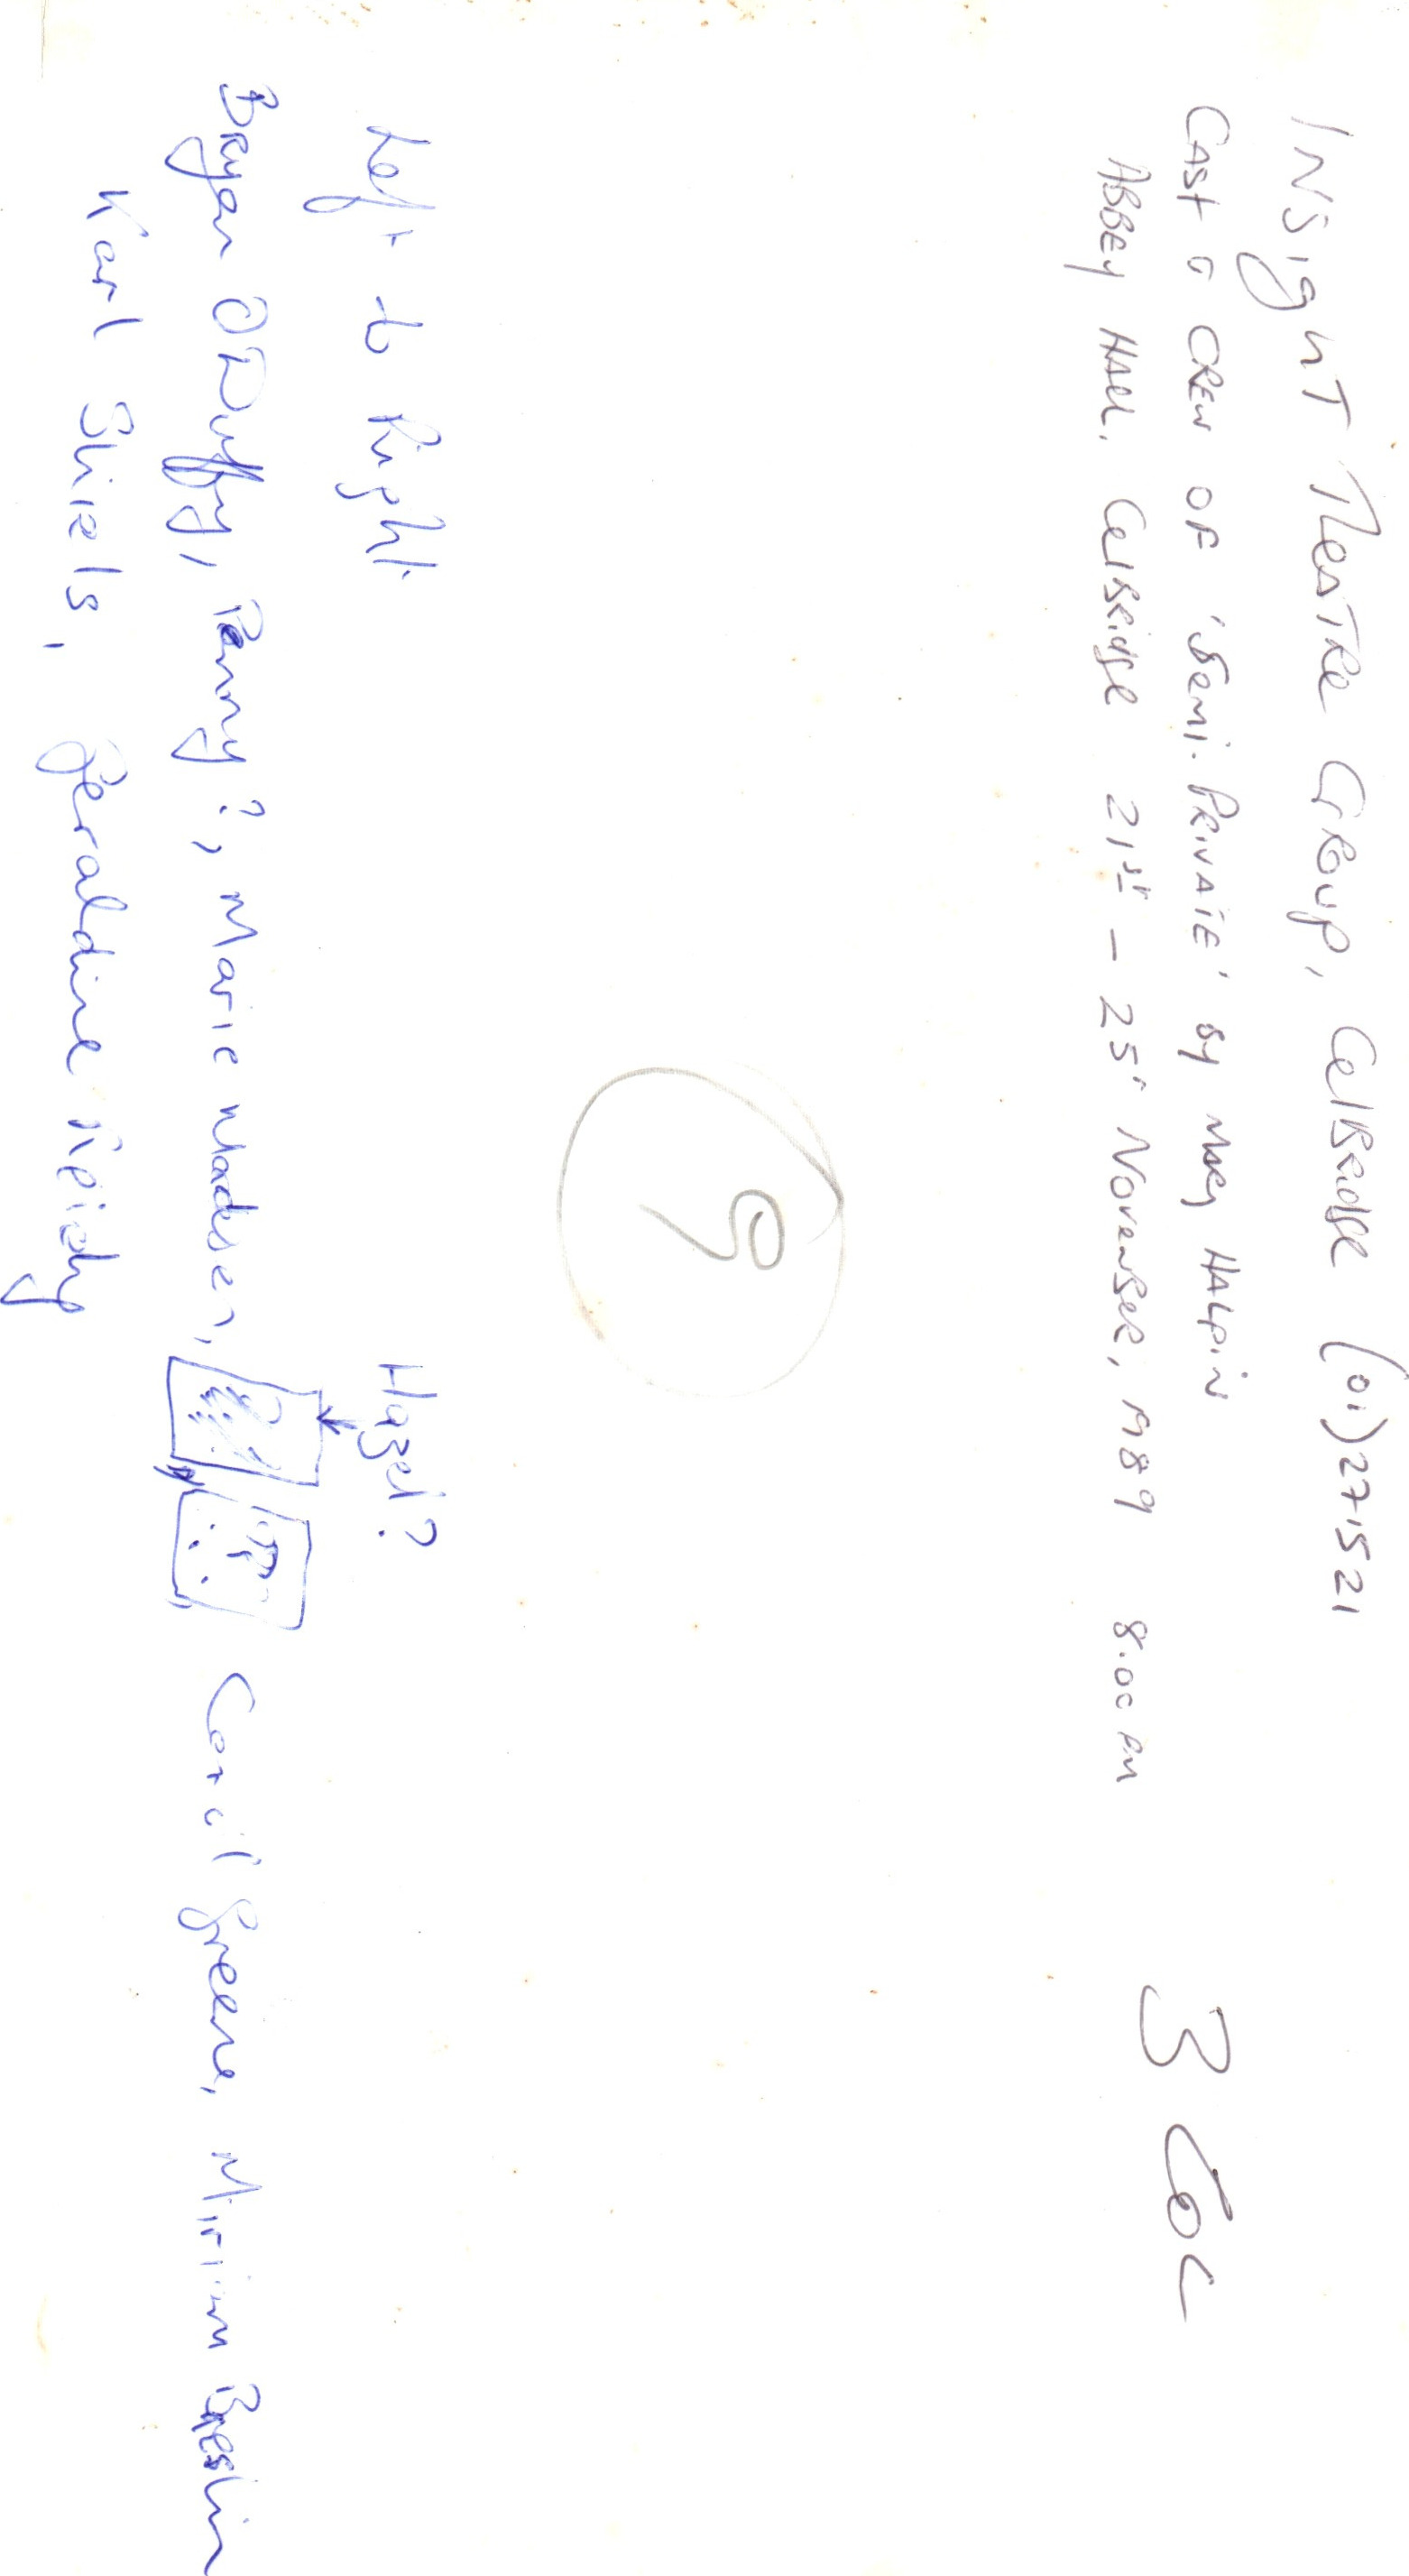 INSIGHT THEATRE GROUP, CELBRIDGE (01) 271521
CAST & CREW OF 'SEMI-PRIVATE' BY MARY HALPIN
ABBEY HALL. CELBRIDGE 21st – 25th NOVEMBER, 1989 8.00 PM
3 COL
9
Left to Right
Hazel?
Bryan O Duffy, Penny?, Marie Madsen, Conail Greene, Miriam Breslin
Karl Shiels, Geraldine Reidy